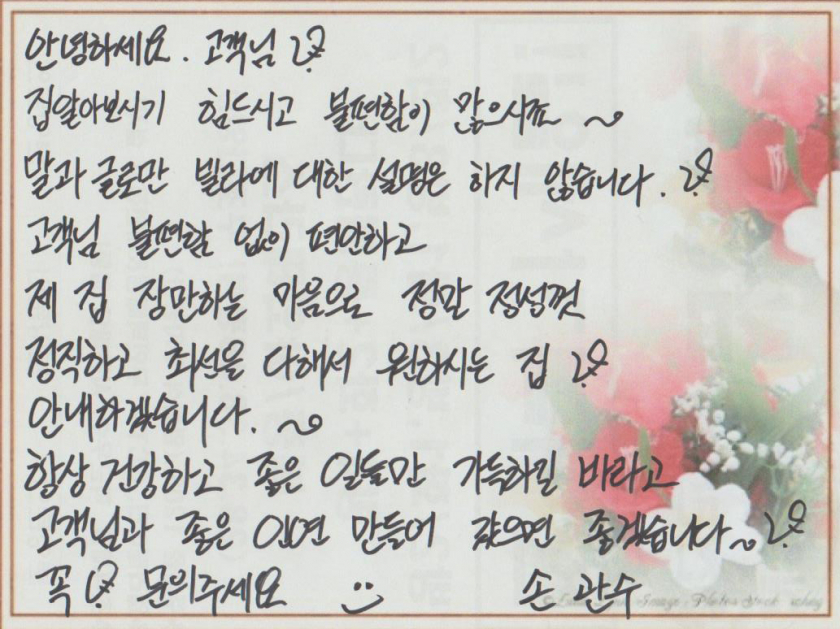 안녕하세요. 고객님
집알아보시기 힘드시고 불편함이 많으시죠 ~
말과 글로만 빌라에 대한 설명은 하지 않습니다.
고객님 불편함 없이 편안하고
제 집 장만하는 마음으로 정말 정성껏
정직하고 최선을 다해서 원하시는 집
안내하겠습니다. ~
항상 건강하고 좋은 일들만 가득하길 바라고
고객님과 좋은 인연 만들어 갔으면 좋겠습니다~
꼭 문의주세요 손 관수